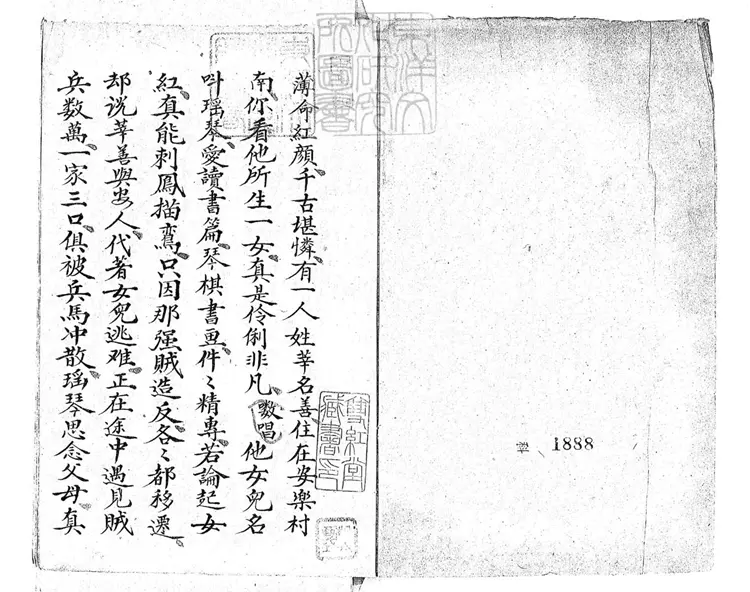 1888
薄命紅顔千古堪憐有一人姓莘名善住在安樂村
南你看他所生一女真是伶俐非凡數唱他女兒名
叫瑶琴愛讀書篇琴棋書画件〻精專若論起女
紅真能刺鳳描鸞只因那强賊造反各〻都移遷
却说莘善與安人代著女兒逃难正在途中遇見賊
兵数萬一家三口俱被兵馬冲散瑶琴思念父母真
雙紅堂
藏書印